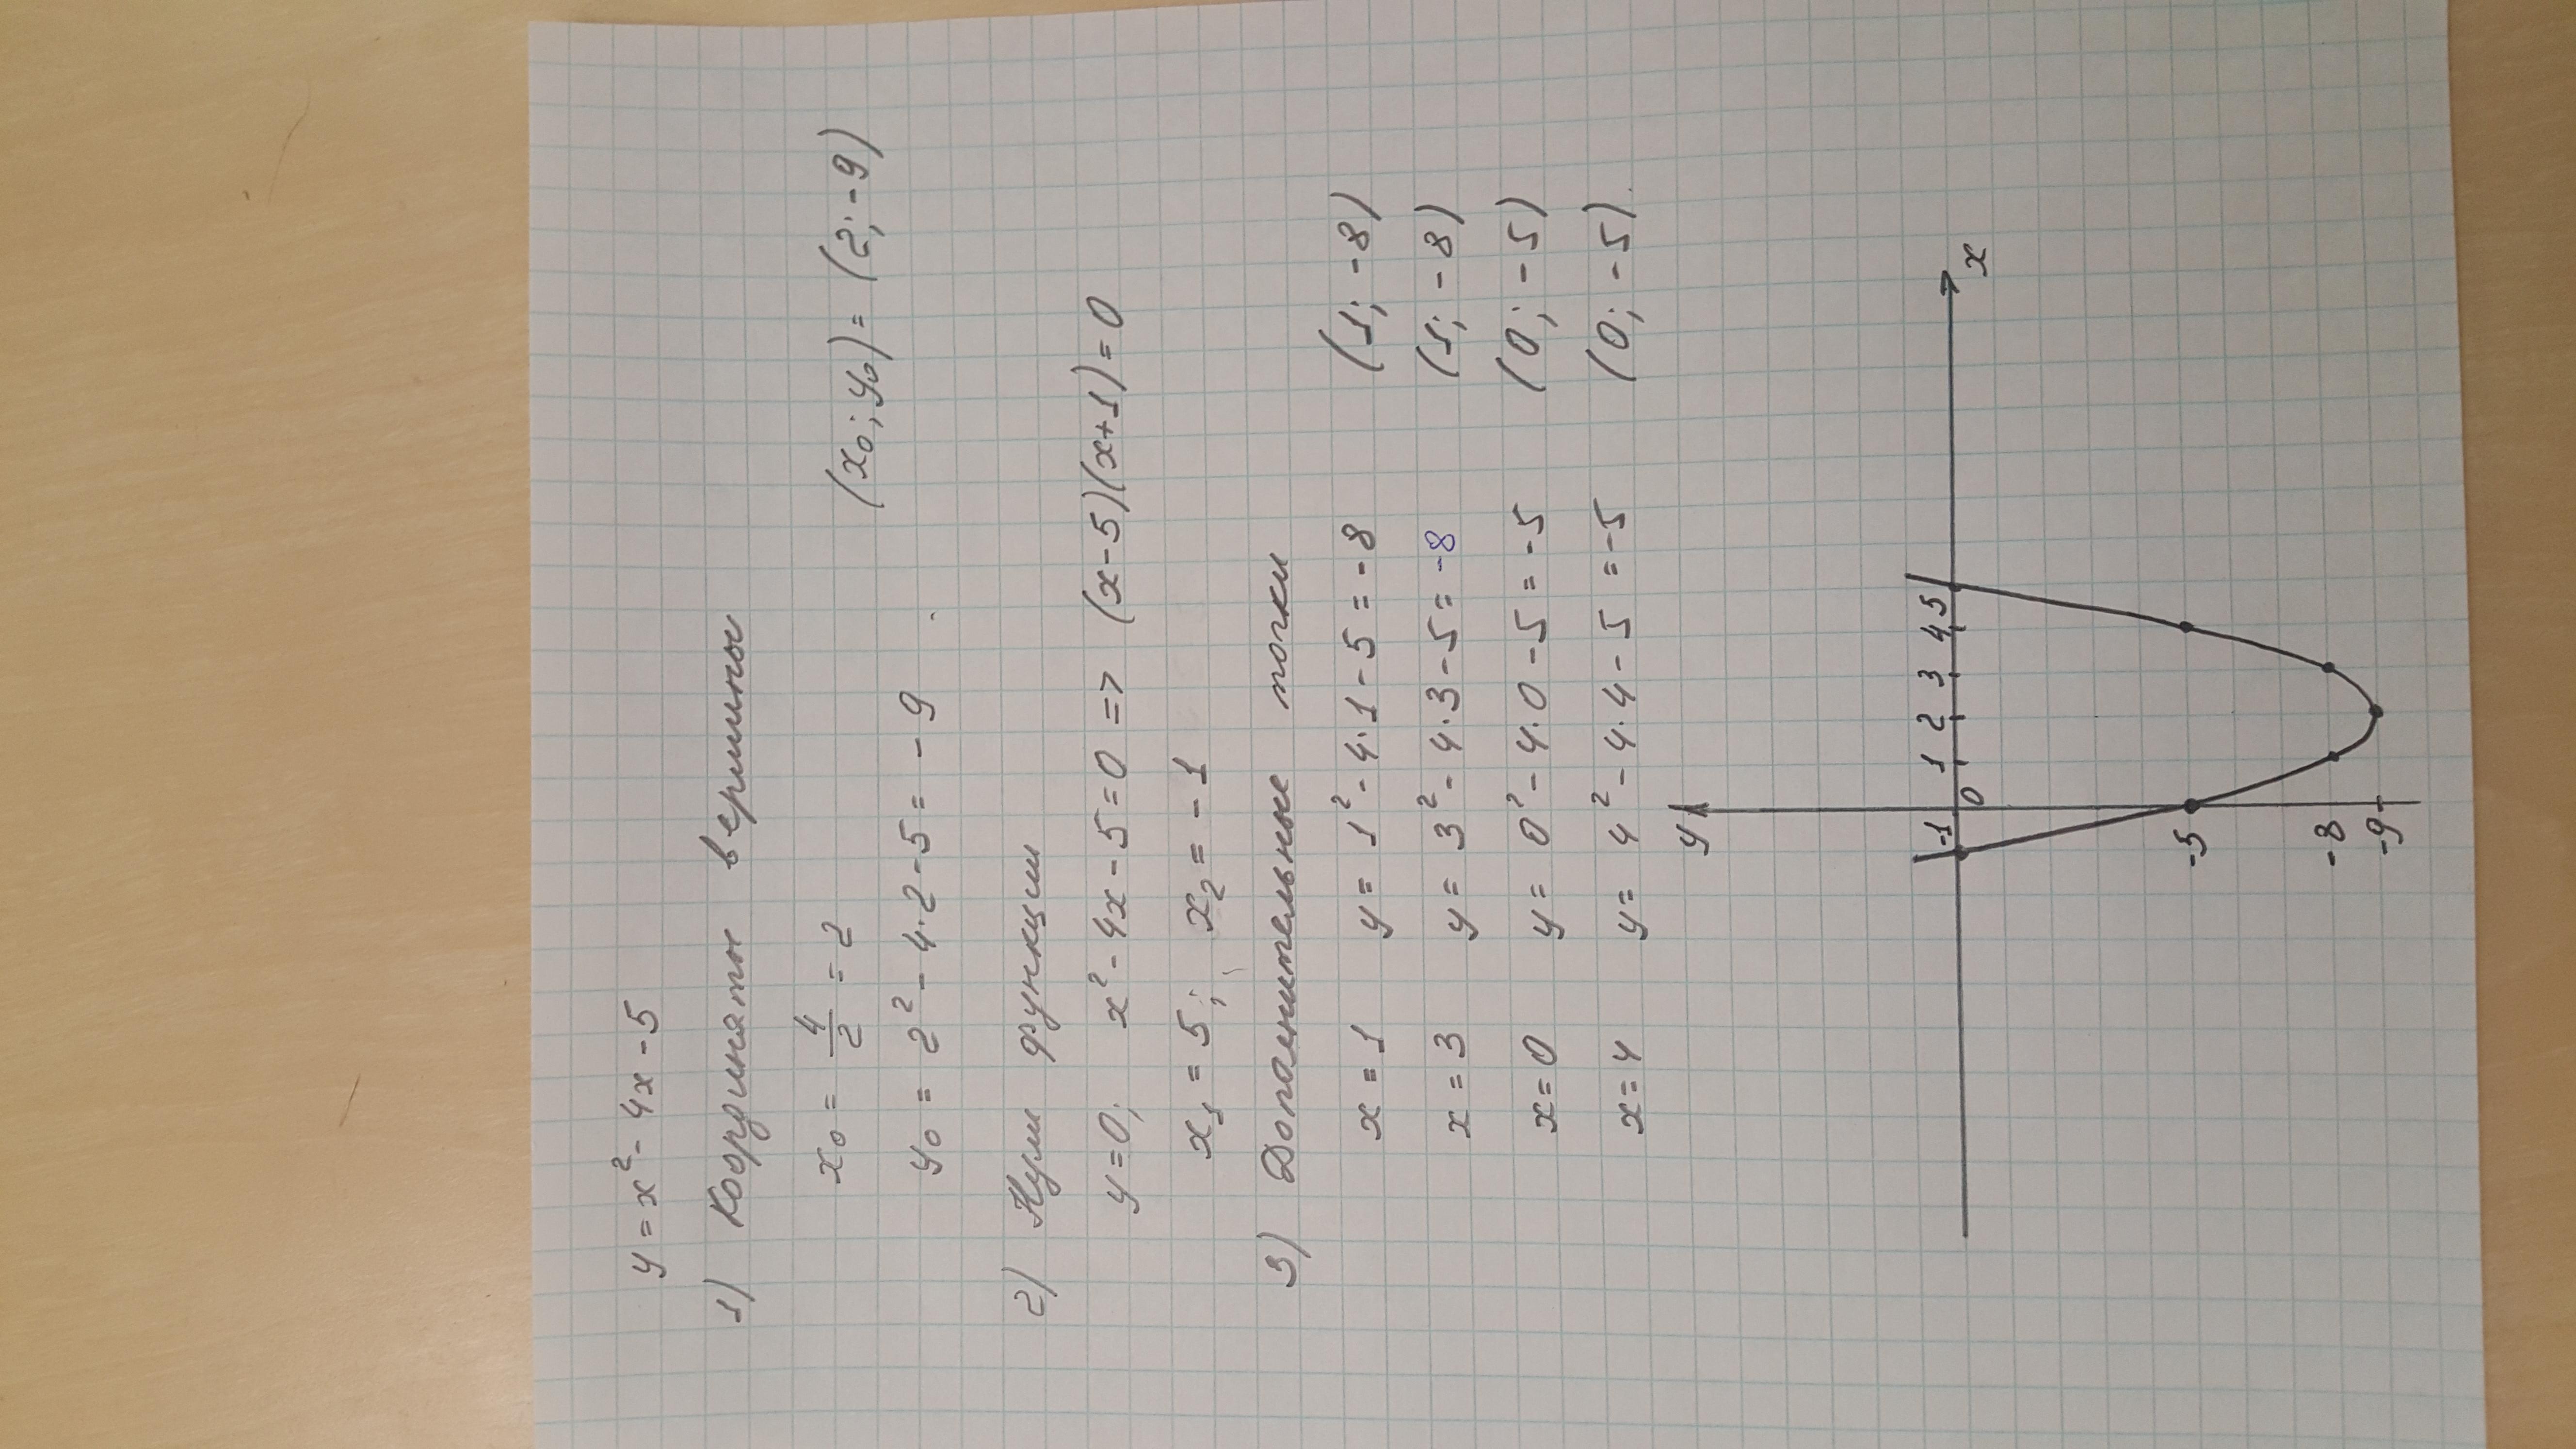 y = x² - 4x - 5
1) Координаты вершины
x₀ = 4/2 = 2
(x₀; y₀) = (2; -9)
y₀ = 2² - 4·2 - 5 = -9
2) Нули функции
y = 0; x² - 4x - 5 = 0 => (x-5)(x+1) = 0
x₁ = 5; x₂ = -1
3) Дополнительные точки
x = 1 y = 1² - 4·1 - 5 = -8 (1; -8)
x = 3 y = 3² - 4·3 - 5 = -8 (1; -8)
x = 0 y = 0² - 4·0 - 5 = -5 (0; -5)
x = 4 y = 4² - 4·4 - 5 = -5 (0; -5)
y
-1 0 1 2 3 4 5 x
-5
-8
-9